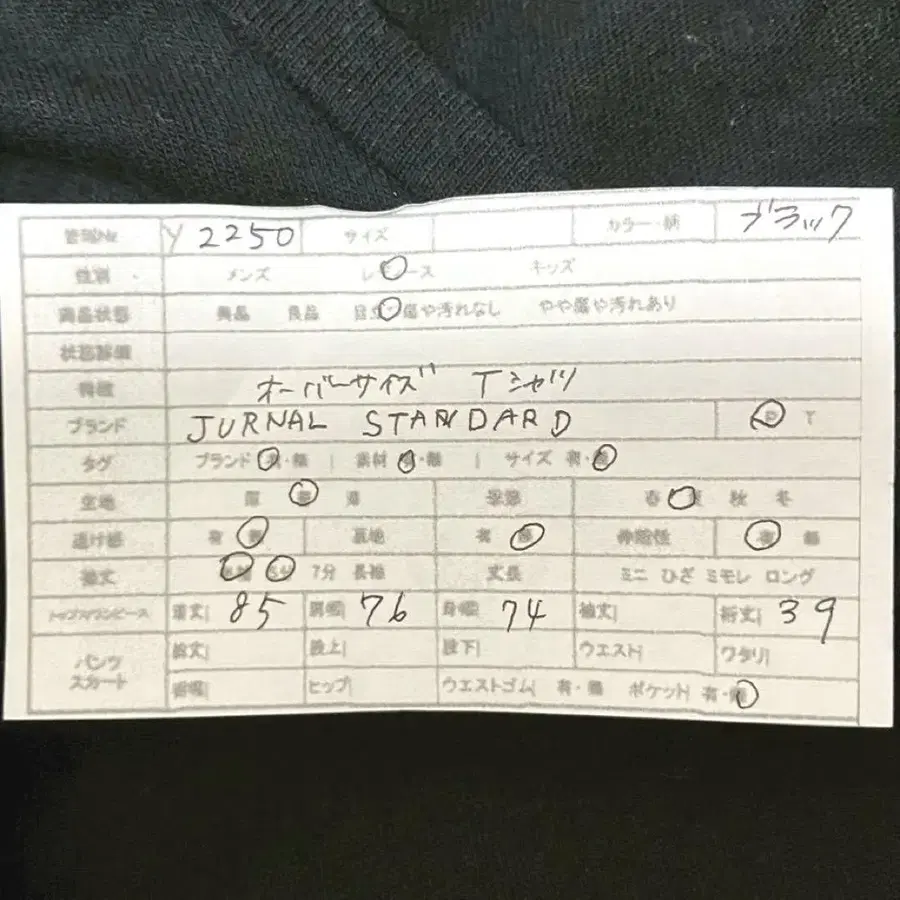 管理No. Y2250 サイズ カラー・柄 ブラック
性別 メンズ レディース キッズ
商品状態 美品 良品 目立つ傷や汚れなし やや傷や汚れあり
状態詳細
特徴 オーバーサイズ Tシャツ
ブランド JURNAL STANDARD T
タグ ブランド 有・無 | 素材 有・無 | サイズ 有・無
生地 厚 普 薄 季節 春 夏 秋 冬
透け感 有 無 裏地 有 無 伸縮性 有 無
袖丈 半袖 5分 7分 長袖 丈長 ミニ ひざ ミモレ ロング
トップス/ワンピース 着丈| 85 肩幅| 76 身幅| 74 袖丈| 裄丈| 39
パンツ スカート 総丈| 股上| 股下| ウエスト| ワタリ|
裾幅| ヒップ| ウエストゴム| 有・無 ポケット| 有・無